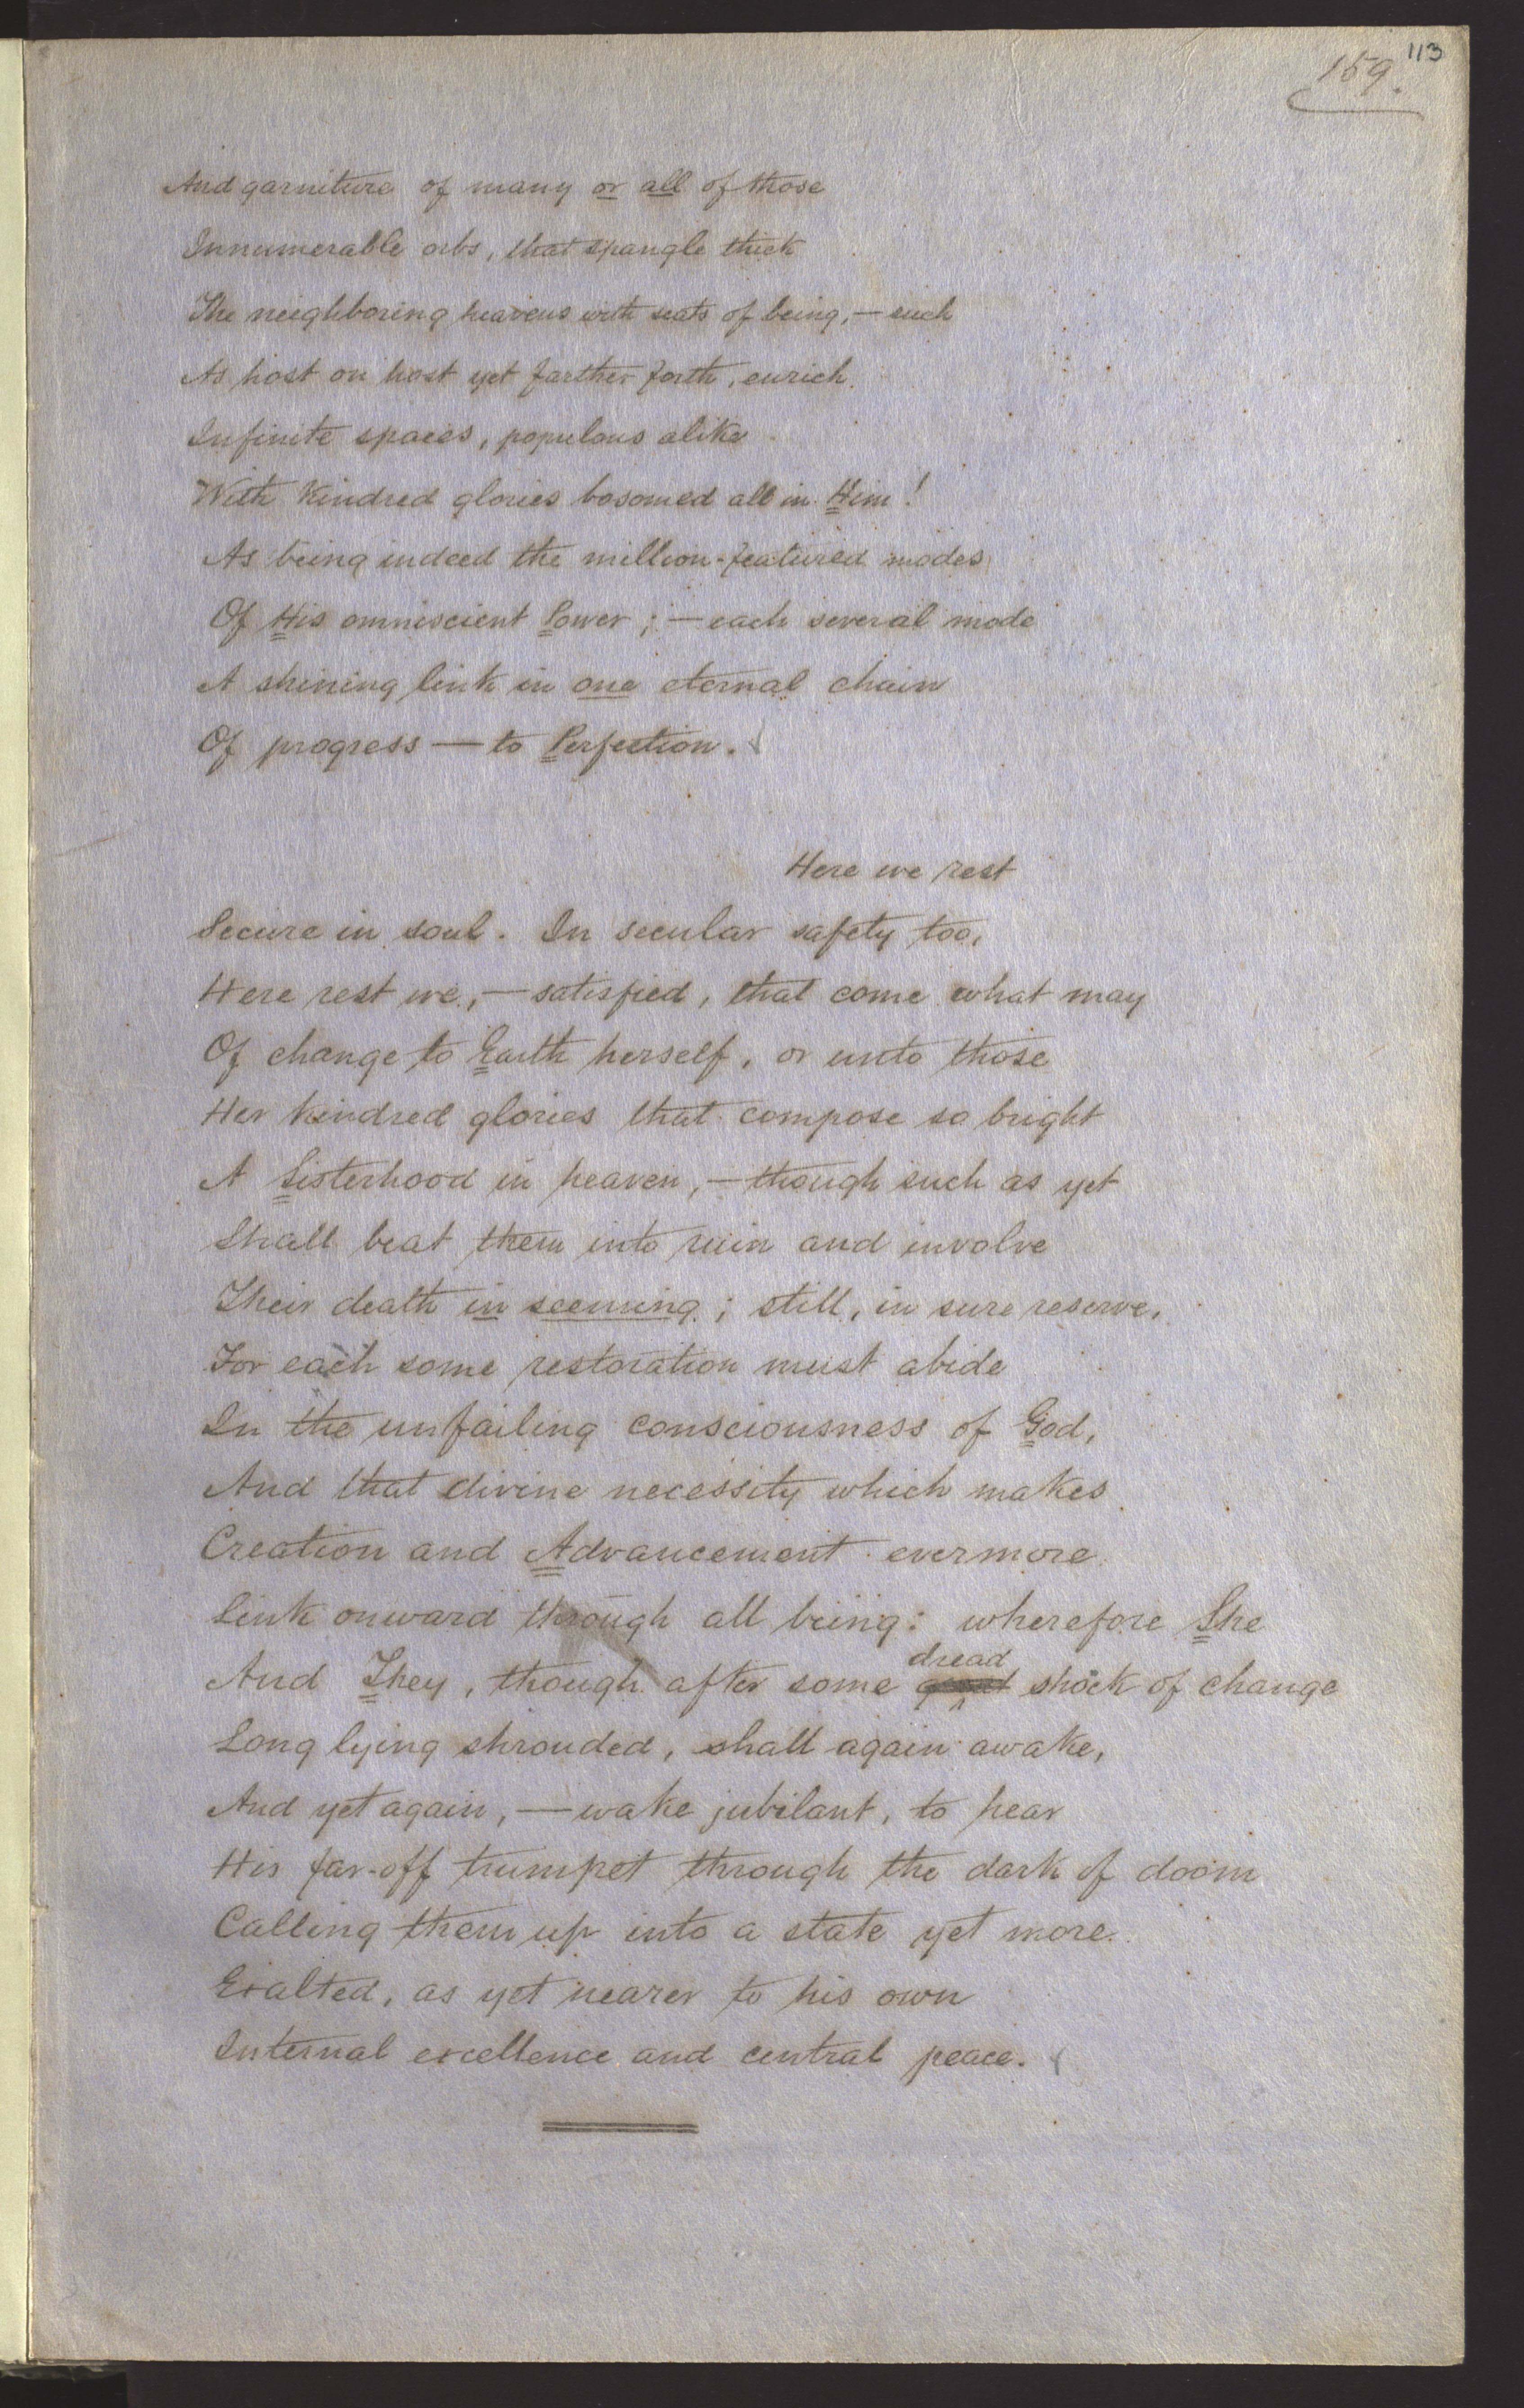 113
159.
And garniture of many or all of those
Innumerable orbs, that spangle thick
The neighboring heavens with seats of being,—such
As host on host yet farther forth, enrich
Infinite spaces, populous alike
With kindred glories bosomed all in Him!
As being indeed the million-featured modes
Of His omniscient Power;—each several mode
A shining link in one eternal chain
Of progress—to Perfection.
Here we rest
Secure in soul. In secular safety too,
Here rest we,—satisfied, that come what may
Of change to Earth herself, or unto those
Her kindred glories that compose so bright
A Sisterhood in heaven,—though such as yet
Shall beat them into ruin and involve
Their death in seeming; still, in sure reserve,
For each some restoration must abide
In the unfailing consciousness of God,
And that divine necessity which makes
Creation and Advancement evermore
Link onward through all being: wherefore She
dread
And They, though after some great shock of change
Long lying shrouded, shall again awake,
And yet again,—wake jubilant, to hear
His far-off trumpet through the dark of doom
Calling them up into a state yet more
Exalted, as yet nearer to his own
Internal excellence and central peace.